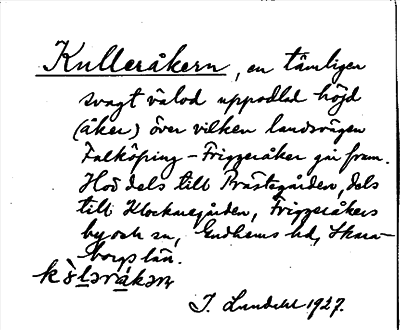 Kulleråkern, en tämligen
svagt välvd uppodlad höjd
(åker) över vilken landsvägen
Falköping – Friggeråker går fram.
Hör dels till Prästegården, dels
till Klockaregården, Friggeråkers
by och sn, Gudhems hd, Skara-
borgs län.
J. Lundahl 1927.